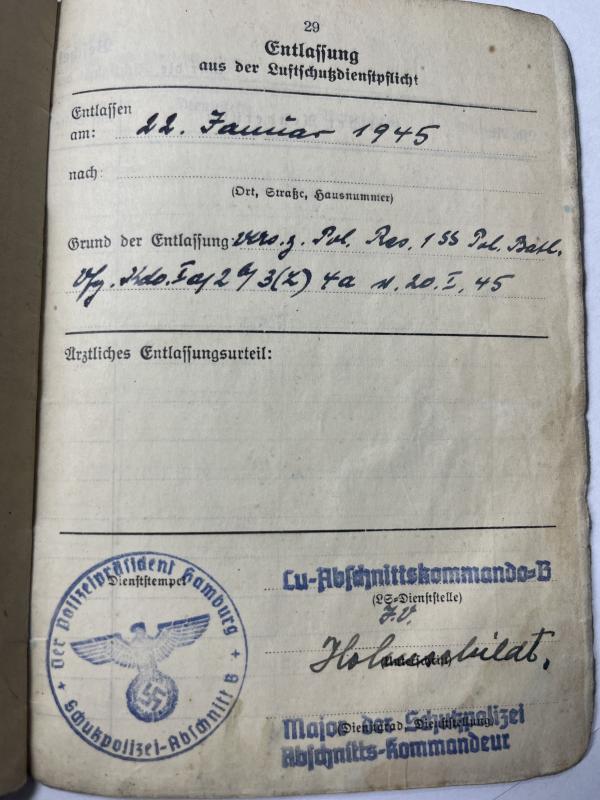 29
Entlassung
aus der Luftschutzdienstpflicht
Entlassen
am: 22. Januar 1945
nach:
(Ort, Straße, Hausnummer)
Grund der Entlassung: Vers. z. Pol. Res. 1 SS Pol. Batl.
Vfg. Kdo. I a/2 3(Z) 4a v. 20. I. 45
Ärztliches Entlassungsurteil:
Der Polizeipräsident Hamburg
Schutzpolizei-Abschnitt B
Dienststempel
Lu-Abschnittskommando-B
(LS-Dienststelle)
I.V.
(Unterschrift)
Major der Schutzpolizei
(Dienstgrad, Dienststellung)
Abschnitts-Kommandeur